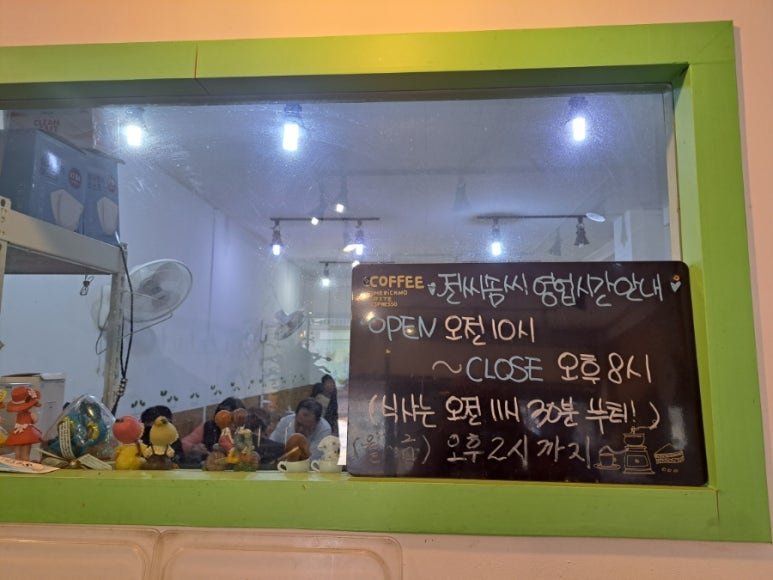 COFFEE
AMERICANO
LATTE
ESPRESSO
전씨폼씨 영업시간안내
OPEN 오전 10시
~ CLOSE 오후 8시
(식사는 오전 11시 30분 부터!)
(월~금) 오후 2시 까지